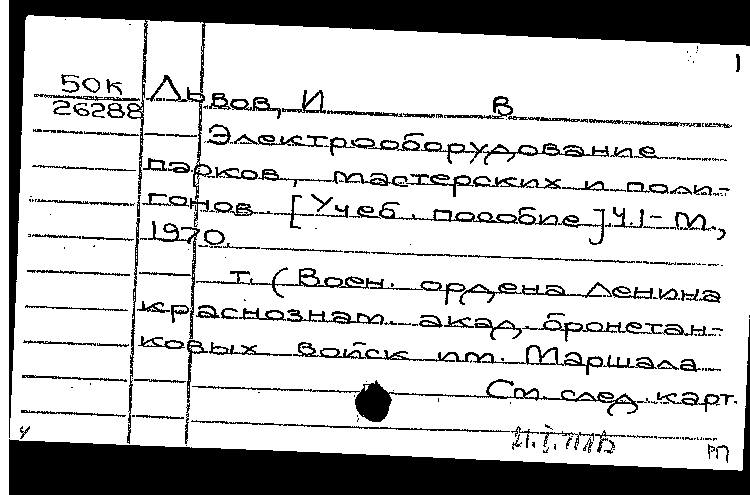 1
50к Львов, И В
26288
Электрооборудование
парков, мастерских и поли-
гонов [Учеб. пособие] Ч.1- М.,
1970.
т. (Воен. ордена Ленина
краснознам. акад. бронетан-
ковых войск им. Маршала
См. след. карт.
РП